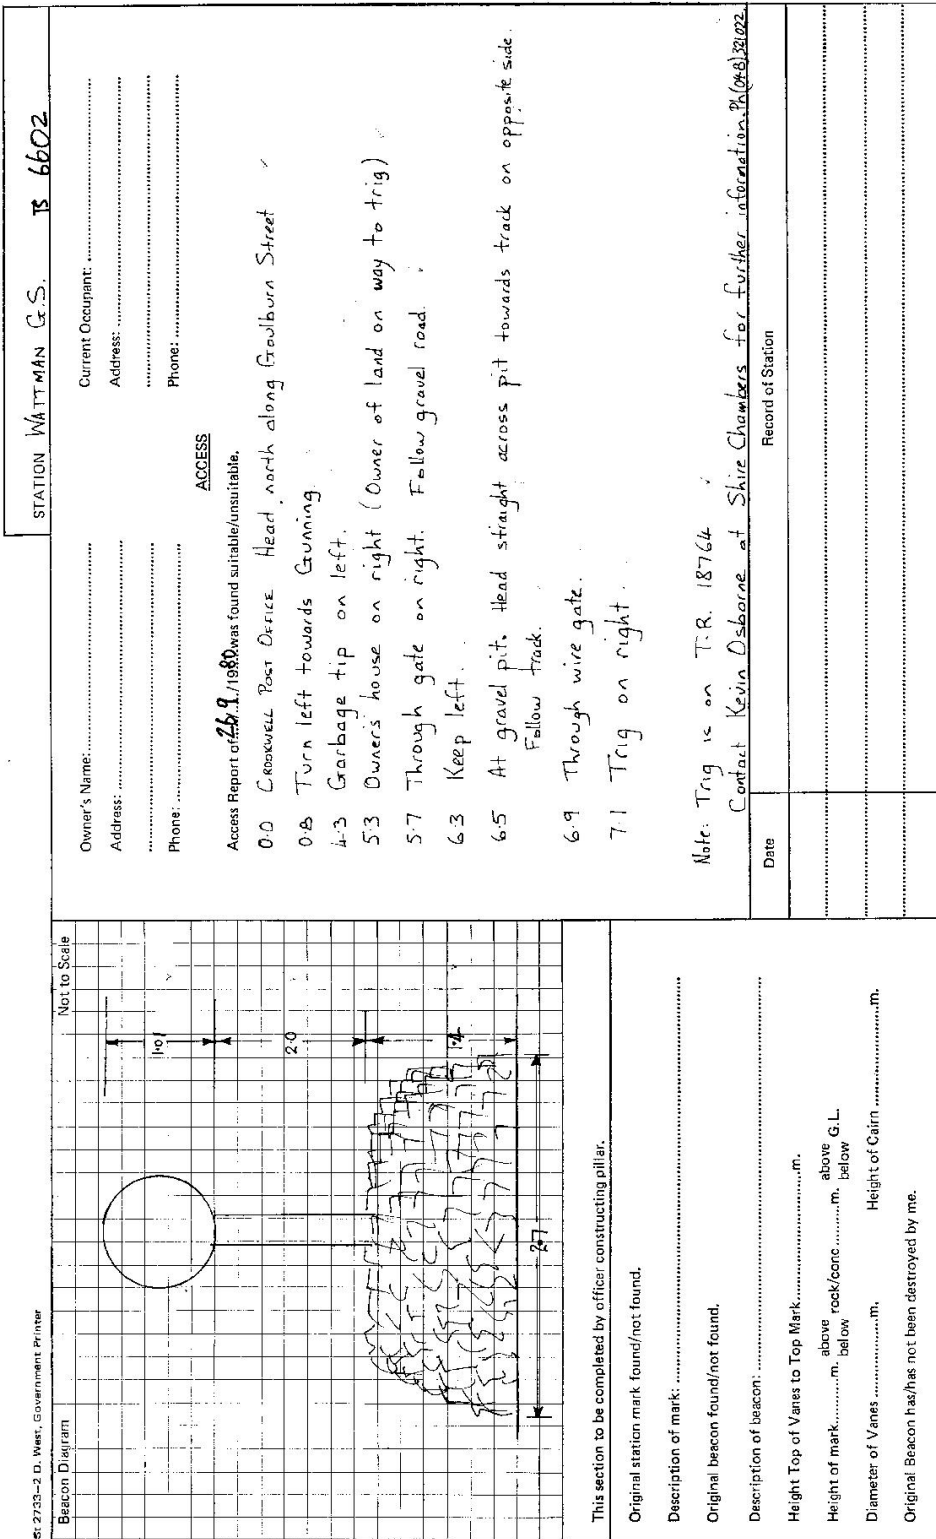 St 2733–2 D. West, Government Printer
Beacon Diagram
Not to Scale
1·01
2·0
1·4
2·7
This section to be completed by officer constructing pillar.
Original station mark found/not found.
Description of mark:
Original beacon found/not found.
Description of beacon:
Height Top of Vanes to Top Mark m.
Height of mark m. above below rock/conc m. above below G.L.
Diameter of Vanes m. Height of Cairn m.
Original Beacon has/has not been destroyed by me.
STATION WATTMAN G.S. TS 6602
Owner's Name: Current Occupant:
Address: Address:
Phone: Phone:
ACCESS
Access Report of 26/9/1980 was found suitable/unsuitable.
0·0 CROOKWELL POST OFFICE Head north along Goulburn Street
0·8 Turn left towards Gunning
4·3 Garbage tip on left.
5·3 Owner's house on right (Owner of land on way to trig)
5·7 Through gate on right. Follow gravel road.
6·3 Keep left.
6·5 At gravel pit. Head straight across pit towards track on opposite side.
Follow track.
6·9 Through wire gate.
7·1 Trig on right.
Note: Trig is on T.R. 18764
Contact Kevin Osborne at Shire Chambers for further information. Ph (048) 321022
Date
Record of Station